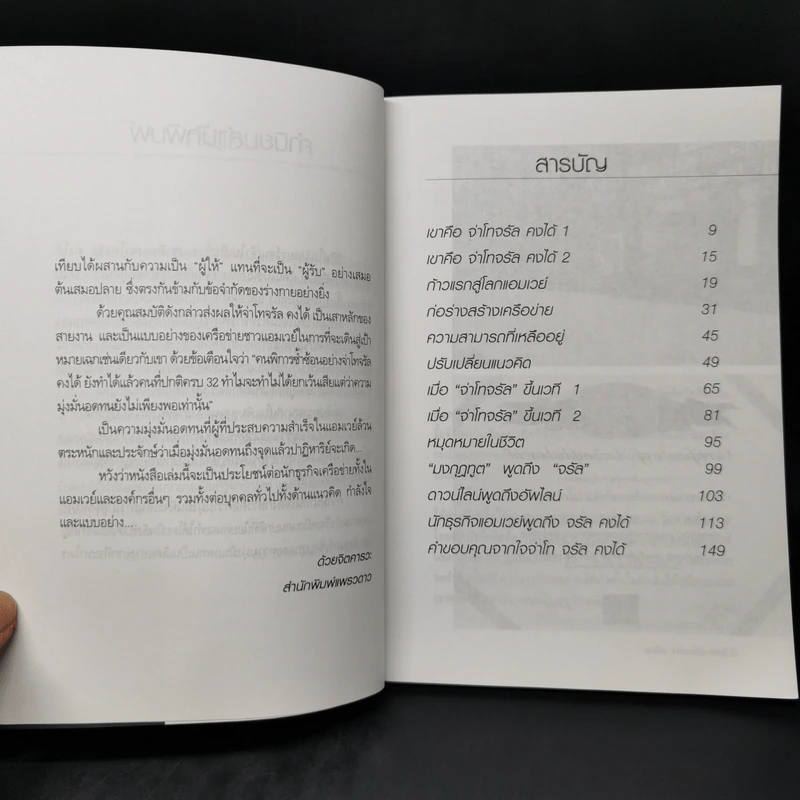 เทียบได้ผสานกับความเป็น "ผู้ให้" แทนที่จะเป็น "ผู้รับ" อย่างเสมอ
ต้นเสมอปลาย ซึ่งตรงกันข้ามกับข้อจำกัดของร่างกายอย่างยิ่ง
ด้วยคุณสมบัติดังกล่าวส่งผลให้จ่าโทจรัล คงได้ เป็นเสาหลักของ
สายงาน และเป็นแบบอย่างของเครือข่ายชาวแอมเวย์ในการที่จะเดินสู่เป้า
หมายเฉกเช่นเดียวกับเขา ด้วยข้อเตือนใจว่า "คนพิการซ้ำซ้อนอย่างจ่าโทจรัล
คงได้ ยังทำได้แล้วคนที่ปกติครบ 32 ทำไมจะทำไม่ได้ยกเว้นเสียแต่ว่าความ
มุ่งมั่นอดทนยังไม่เพียงพอเท่านั้น"
เป็นความมุ่งมั่นอดทนที่ผู้ที่ประสบความสำเร็จในแอมเวย์ล้วน
ตระหนักและประจักษ์ว่าเมื่อมุ่งมั่นอดทนถึงจุดแล้วปาฏิหาริย์จะเกิด...
หวังว่าหนังสือเล่มนี้จะเป็นประโยชน์ต่อนักธุรกิจเครือข่ายทั้งใน
แอมเวย์และองค์กรอื่นๆ รวมทั้งต่อบุคคลทั่วไปทั้งด้านแนวคิด กำลังใจ
และแบบอย่าง...
ด้วยจิตคารวะ
สำนักพิมพ์แพรวดาว
สารบัญ
เขาคือ จ่าโทจรัล คงได้ 1 9
เขาคือ จ่าโทจรัล คงได้ 2 15
ก้าวแรกสู่โลกแอมเวย์ 19
ก่อร่างสร้างเครือข่าย 31
ความสามารถที่เหลืออยู่ 45
ปรับเปลี่ยนแนวคิด 49
เมื่อ "จ่าโทจรัล" ขึ้นเวที 1 65
เมื่อ "จ่าโทจรัล" ขึ้นเวที 2 81
หมุดหมายในชีวิต 95
"มงกุฎทูต" พูดถึง "จรัล" 99
ดาวน์ไลน์พูดถึงอัพไลน์ 103
นักธุรกิจแอมเวย์พูดถึง จรัล คงได้ 113
คำขอบคุณจากใจจ่าโท จรัล คงได้ 149